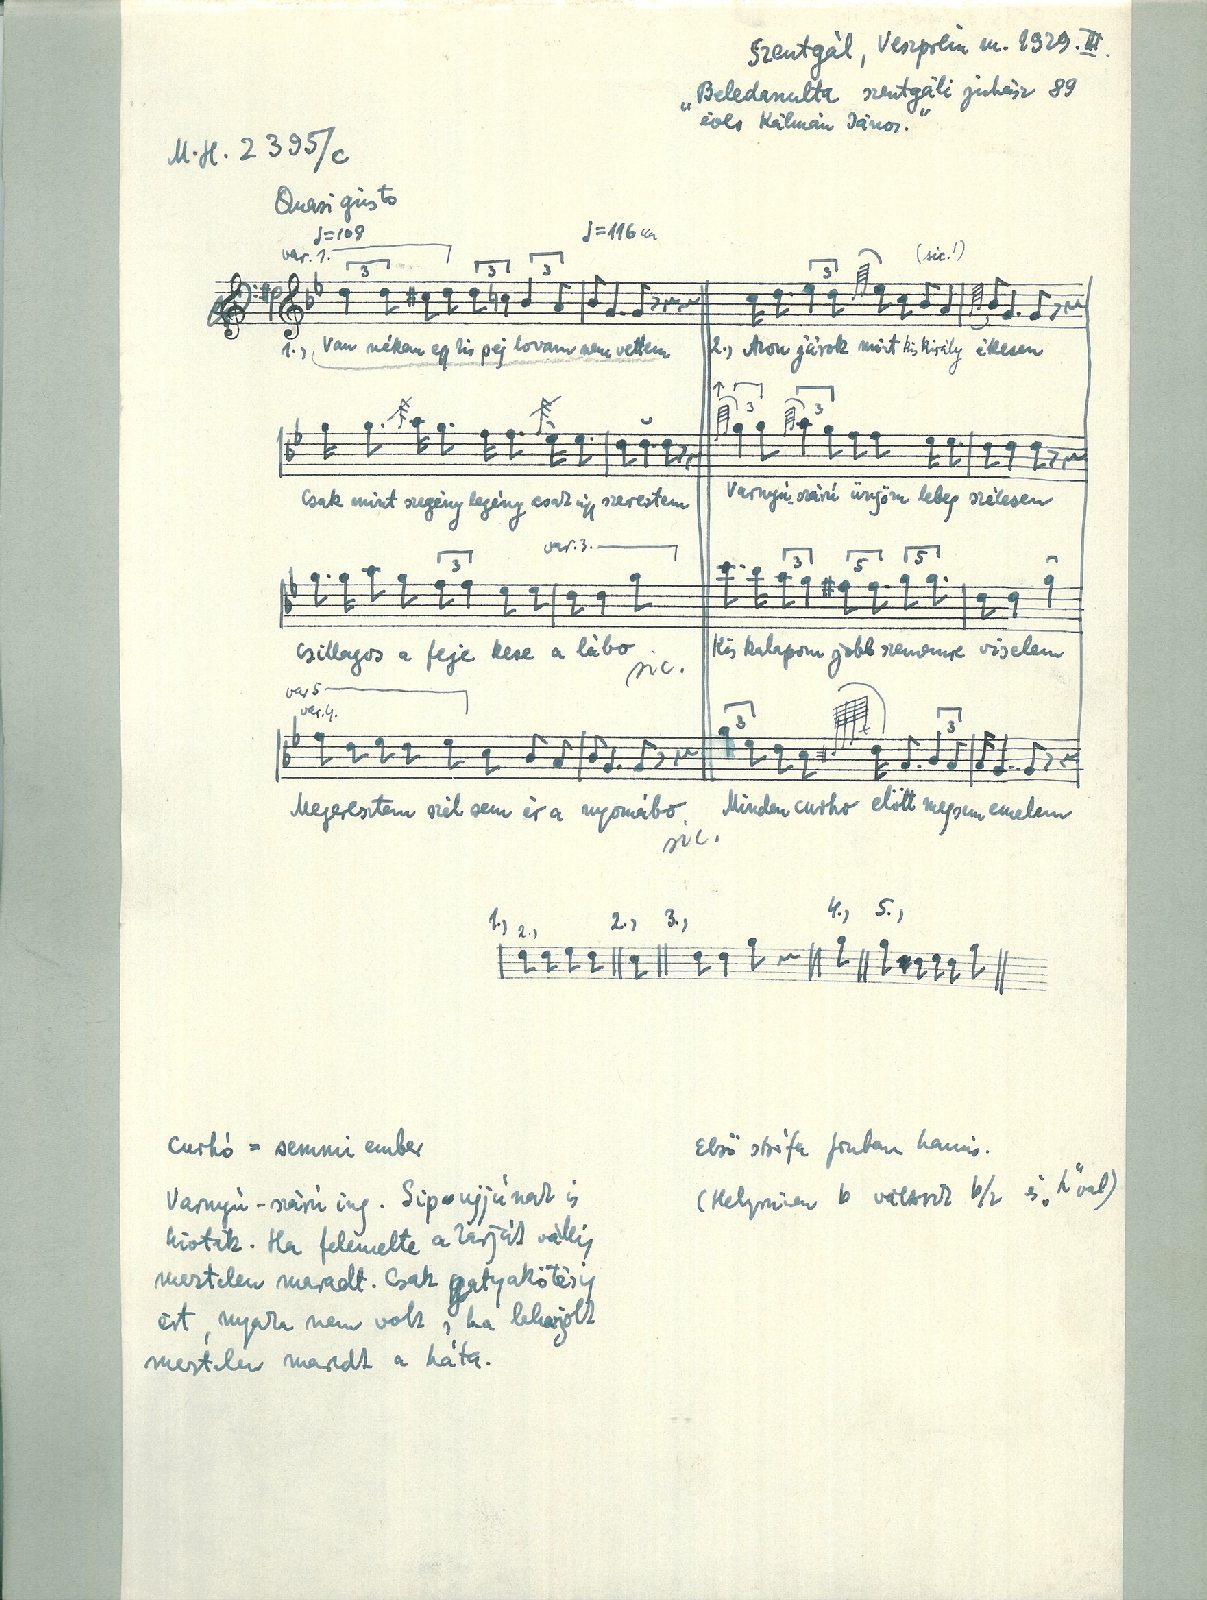 Szentgál, Veszprém m. 1929. III.
„Beledanulta szentgáli juhász 89
éves Kálmán János."
M.H. 2395/c
Quasi giusto
♩=108
♩=116
var. 1.
3
3
3
3
(sic!)
1., Van nékem egy kis pej lovam nem vettem
2., Azon járok mint kis király ékesen
3
3
Csak mint szegény legény csak úgy szerestem
Varnyú-szárú üngöm lebeg szélesen
3
var. 3.
3
5
5
Csillagos a feje kese a lábo
sic.
Kis kalapom jobb szemömre viselem
var 5
var. 4.
3
3
Megeresztem szél sem ér a nyomábo
sic.
Minden curho előtt megsem emelem
1., 2., 2., 3., 4., 5.,
Curhó = semmi ember
Varnyú-szárú ing. Sip-ujjúnak is
hiották. Ha felemelte a karját vállig
meztelen maradt. Csak gatyakötésig
ért, nyaka nem volt, ha lehajolt
meztelen maradt a háta.
Első strófa fonban hamis.